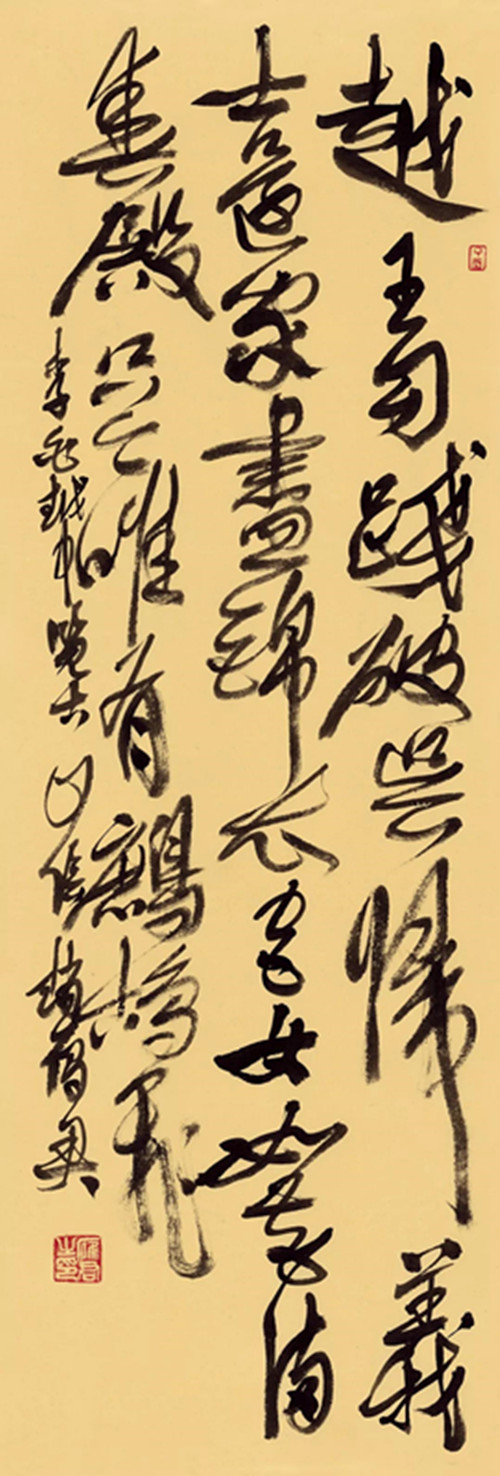 越王勾踐破吳歸義
士還家盡錦衣宮女如花滿
春殿只今唯有鷓鴣飛
李白越中覽古 趙雁君